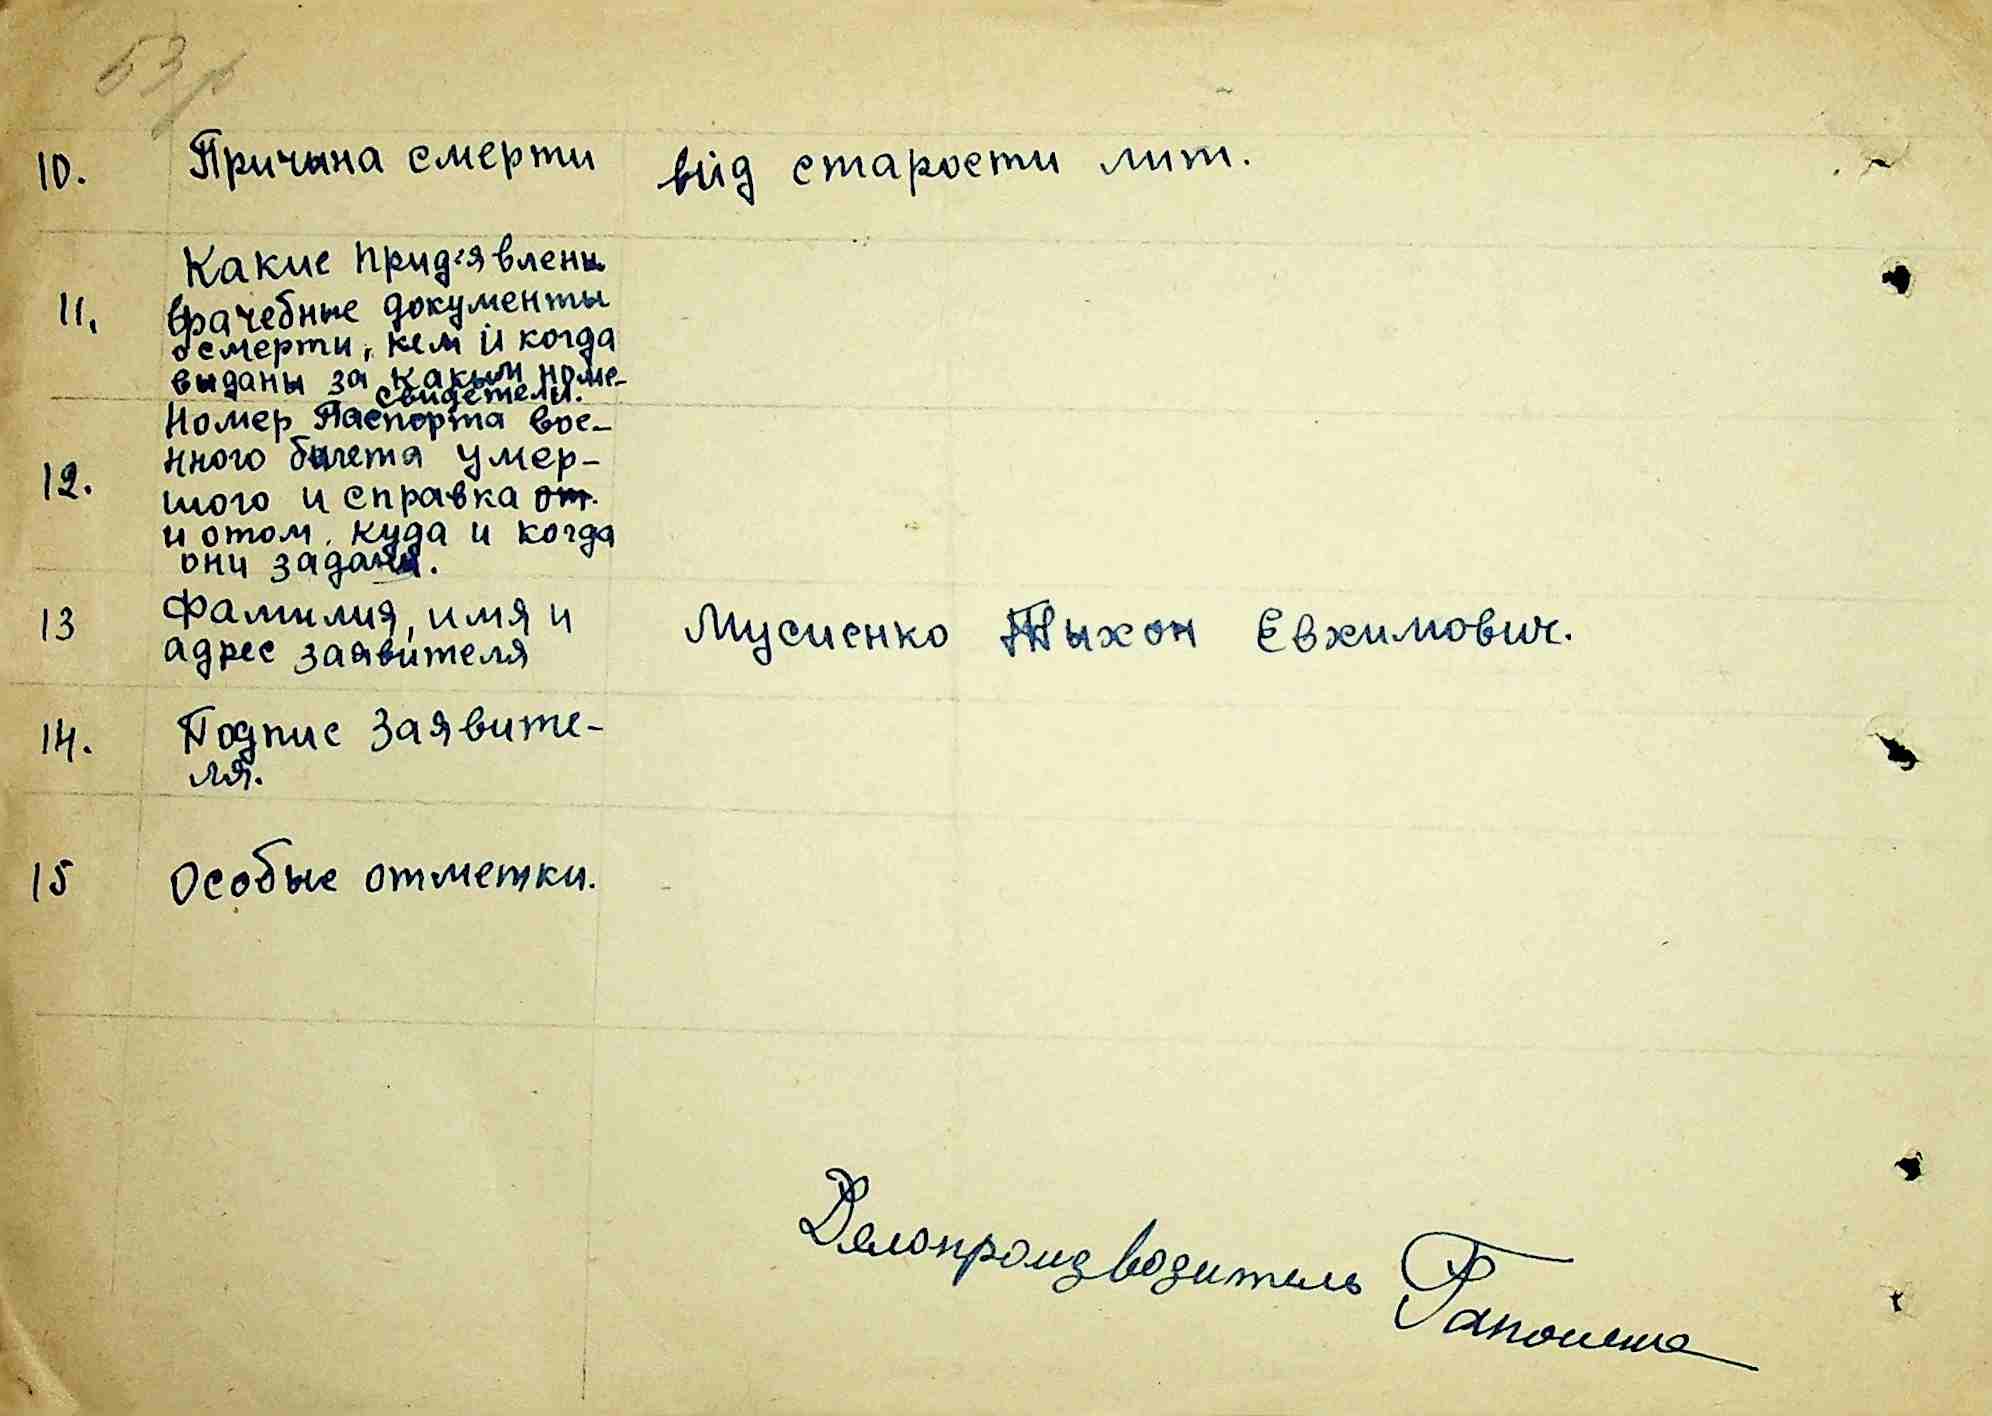 53
10. Причына смерти вiд старости лит.
Какие прид'явлены
11. врачебные документы
о смерти, кем и когда
выданы за какым номе-
свидетели.
Номер Паспорта вое-
нного билета умер-
12. шого и справка от.
и отом. куда и когда
они заданы.
13 Фамилия, имя и Мусиенко Тыхон Евхимович.
адрес заявителя
14. Подпис Заявите-
ля.
15 Особые отметки.
Делопроизводитель